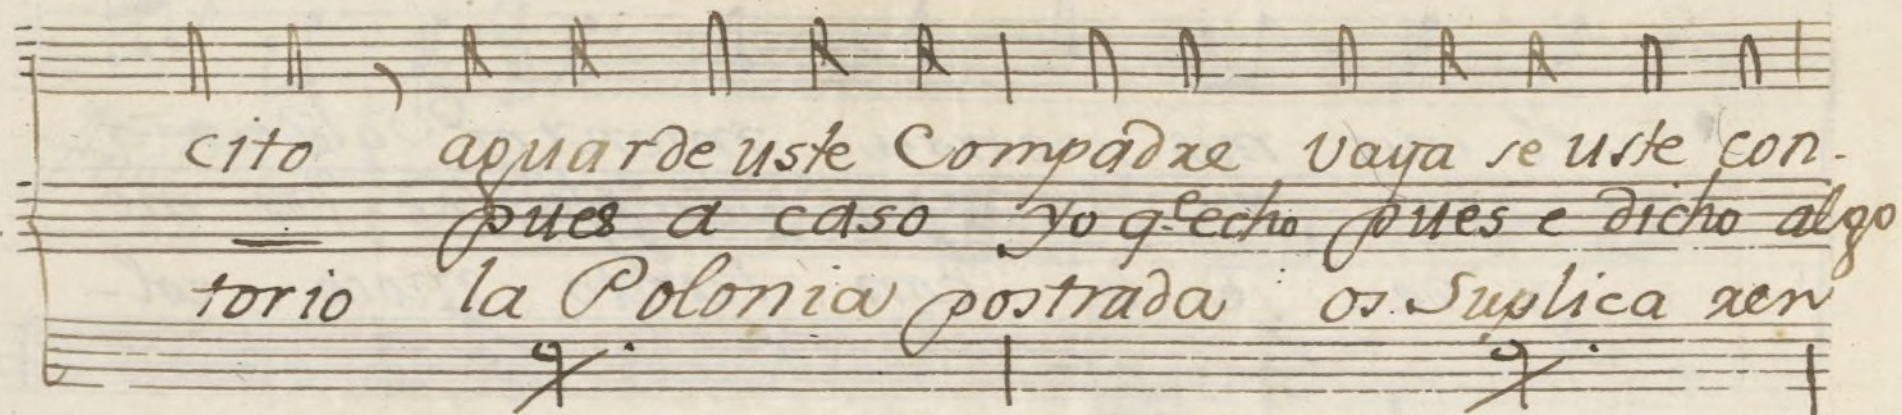 cito aguarde uste Compadre vaya se uste con-
pues a caso yo qe echo pues e dicho algo
torio la Polonia postrada os Suplica ren